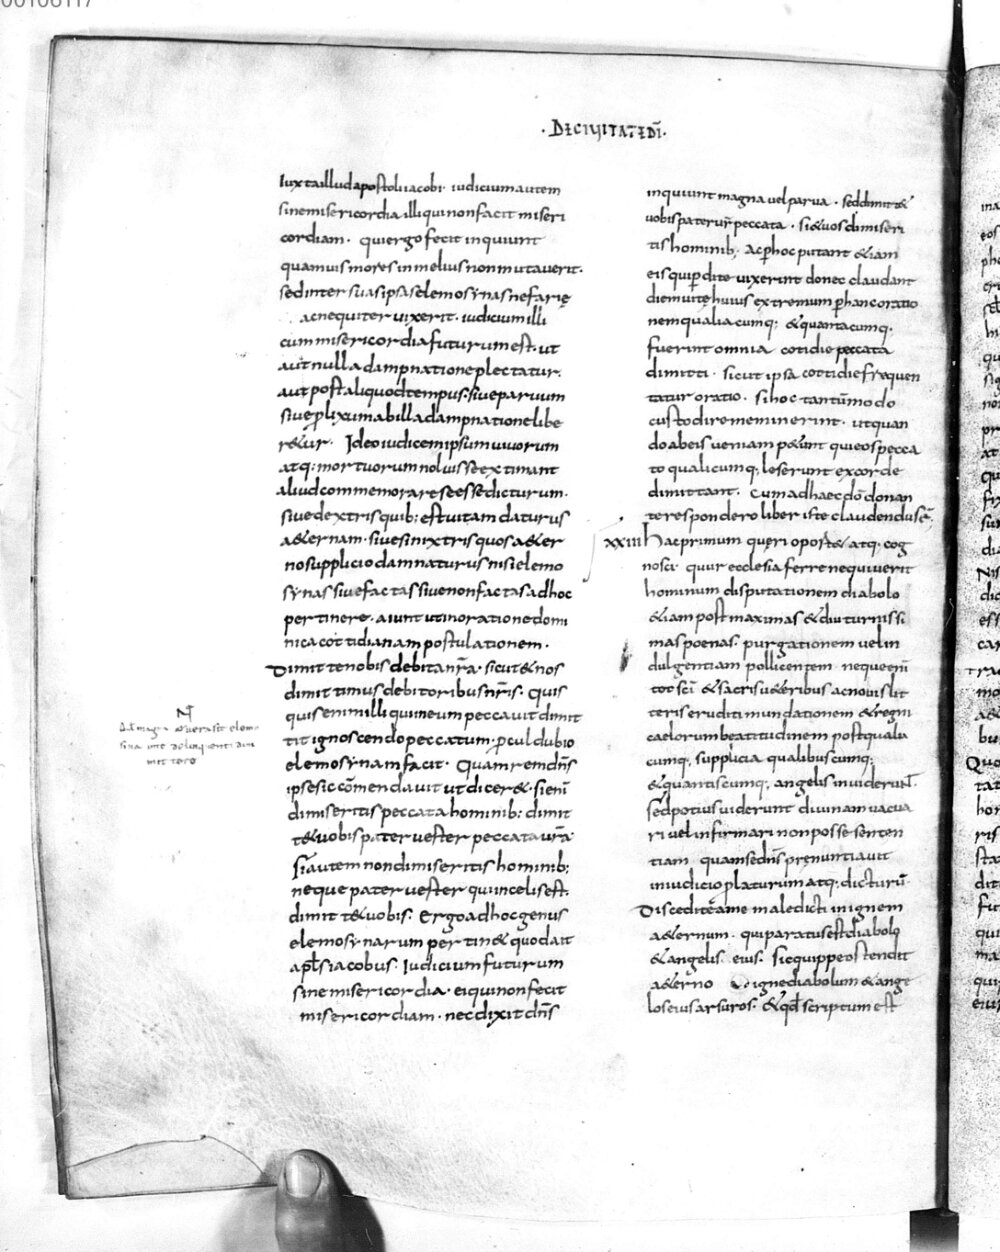 00106117
· DECIVITATEDI̅ ·
Iuxtailludapostoli iacobi · iudiciumautem
sinemisericordia illi quinonfacit miseri
cordiam · quiergofecit inquiunt
quamuis mores inmelius nonmutauerit ·
sedinter suasipsaselemosynas nefarie
acnequiter uixerit · iudicium illi
cum misericordia futurumest · ut
aut nulla dampnatione plectatur ·
aut post aliquodtempus · siue paruum
siue plixum abilla dampnatione libe
retur · Ideo iudicem ipsum uiuorum
atq; mortuorum noluisse extimant
aliud commemorare se esse dicturum ·
siue dextris quib; est uitam daturus
aeternam · siue sinixtris quos aeter
no supplicio damnaturus nisi elemo
synas siue factas siue nonfactas adhoc
pertinere · aiunt ut inoratione domi
nica cottidianam postulationem ·
Dimitte nobis debita nr̅a · sicut & nos
dimittimus debitoribus nr̅is · quis
quis enim illi qui ineum peccauit dimit
tit ignoscendo peccatum · pcul dubio
elemosynam facit · Quam rem dn̅s
ipse sic co̅mendauit ut dicer& · si eni̅
dimiseritis peccata hominib; dimit
t& uobis pater uester peccata ur̅a
Si autem nondimiseritis hominib;
neque pater uester qui incelis est ·
dimitt& uobis · Ergo adhoc genus
elemosynarum pertin& quod ait
apl̅s iacobus · Iudicium futurum
sine misericordia · ei qui non fecit
misericordiam · nec dixit dn̅s
inquiunt magna uel parua · sed dimitt&
uobis pater ur̅ peccata · si & uos dimiseri
tis hominib; Ac phoc putant & iam
eis qui pdite uixerint donec claudant
diem uitę huius extremum phanc oratio
nem qualiacumq; & quantacumq;
fuerint omnia cotidie peccata
dimitti · sicut ipsa cottidie frequen
tatur oratio · si hoc tantu̅modo
custodire meminerint · ut quan
do ab eis ueniam p&unt qui eos pecca
to qualicumq; leserunt ex corde
dimittant · Cum ad haec do̅ donan
te respondero liber iste claudendus e̅ ·
xxiii Hac primum queri oport& atq; cog
nosci · quur ecclesia ferre nequiuerit
hominum disputationem diabolo
& iam post maximas & diuturnissi
mas poenas · purgationem uel in
dulgentiam pollicentem · neque eni̅
tot sc̅i & sacris u&eribus ac nouis lit
teris eruditi mundationem & regni
caelorum beatitudinem post qualia
cumq; supplicia qualibuscumq;
& quantiscumq; angelis inuiderunt ·
sed potius uiderunt diuinam uacua
ri uel infirmari non posse senten
tiam quam se dn̅s prenuntiauit
in iudicio platurum atq; dicturu̅ ·
Discedite a me maledicti in ignem
aeternum · qui paratus est diabolo
& angelis eius · sic quippe ostendit
aeterno igne diabolum & ange
los eius arsuros · & qd̅ scriptum est